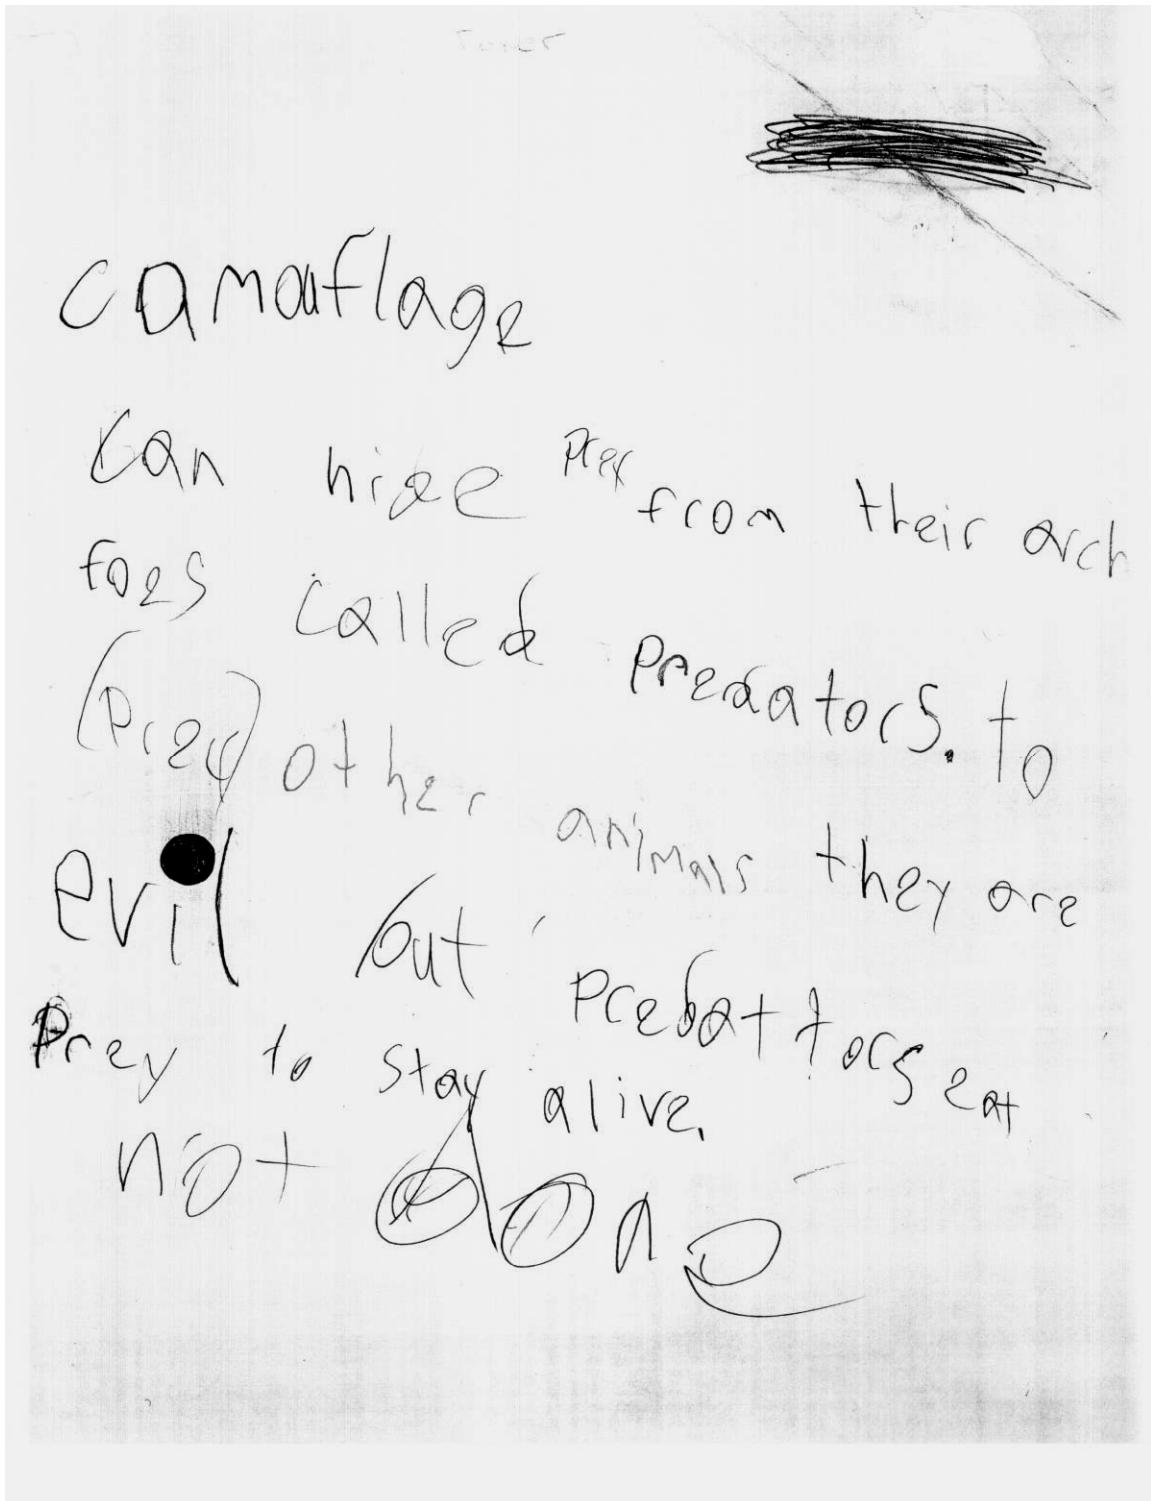 camouflage
can hide prey from their arch
foes called predators. to
(prey) other animals they are
evil but prebattors eat
prey to stay alive.
not done